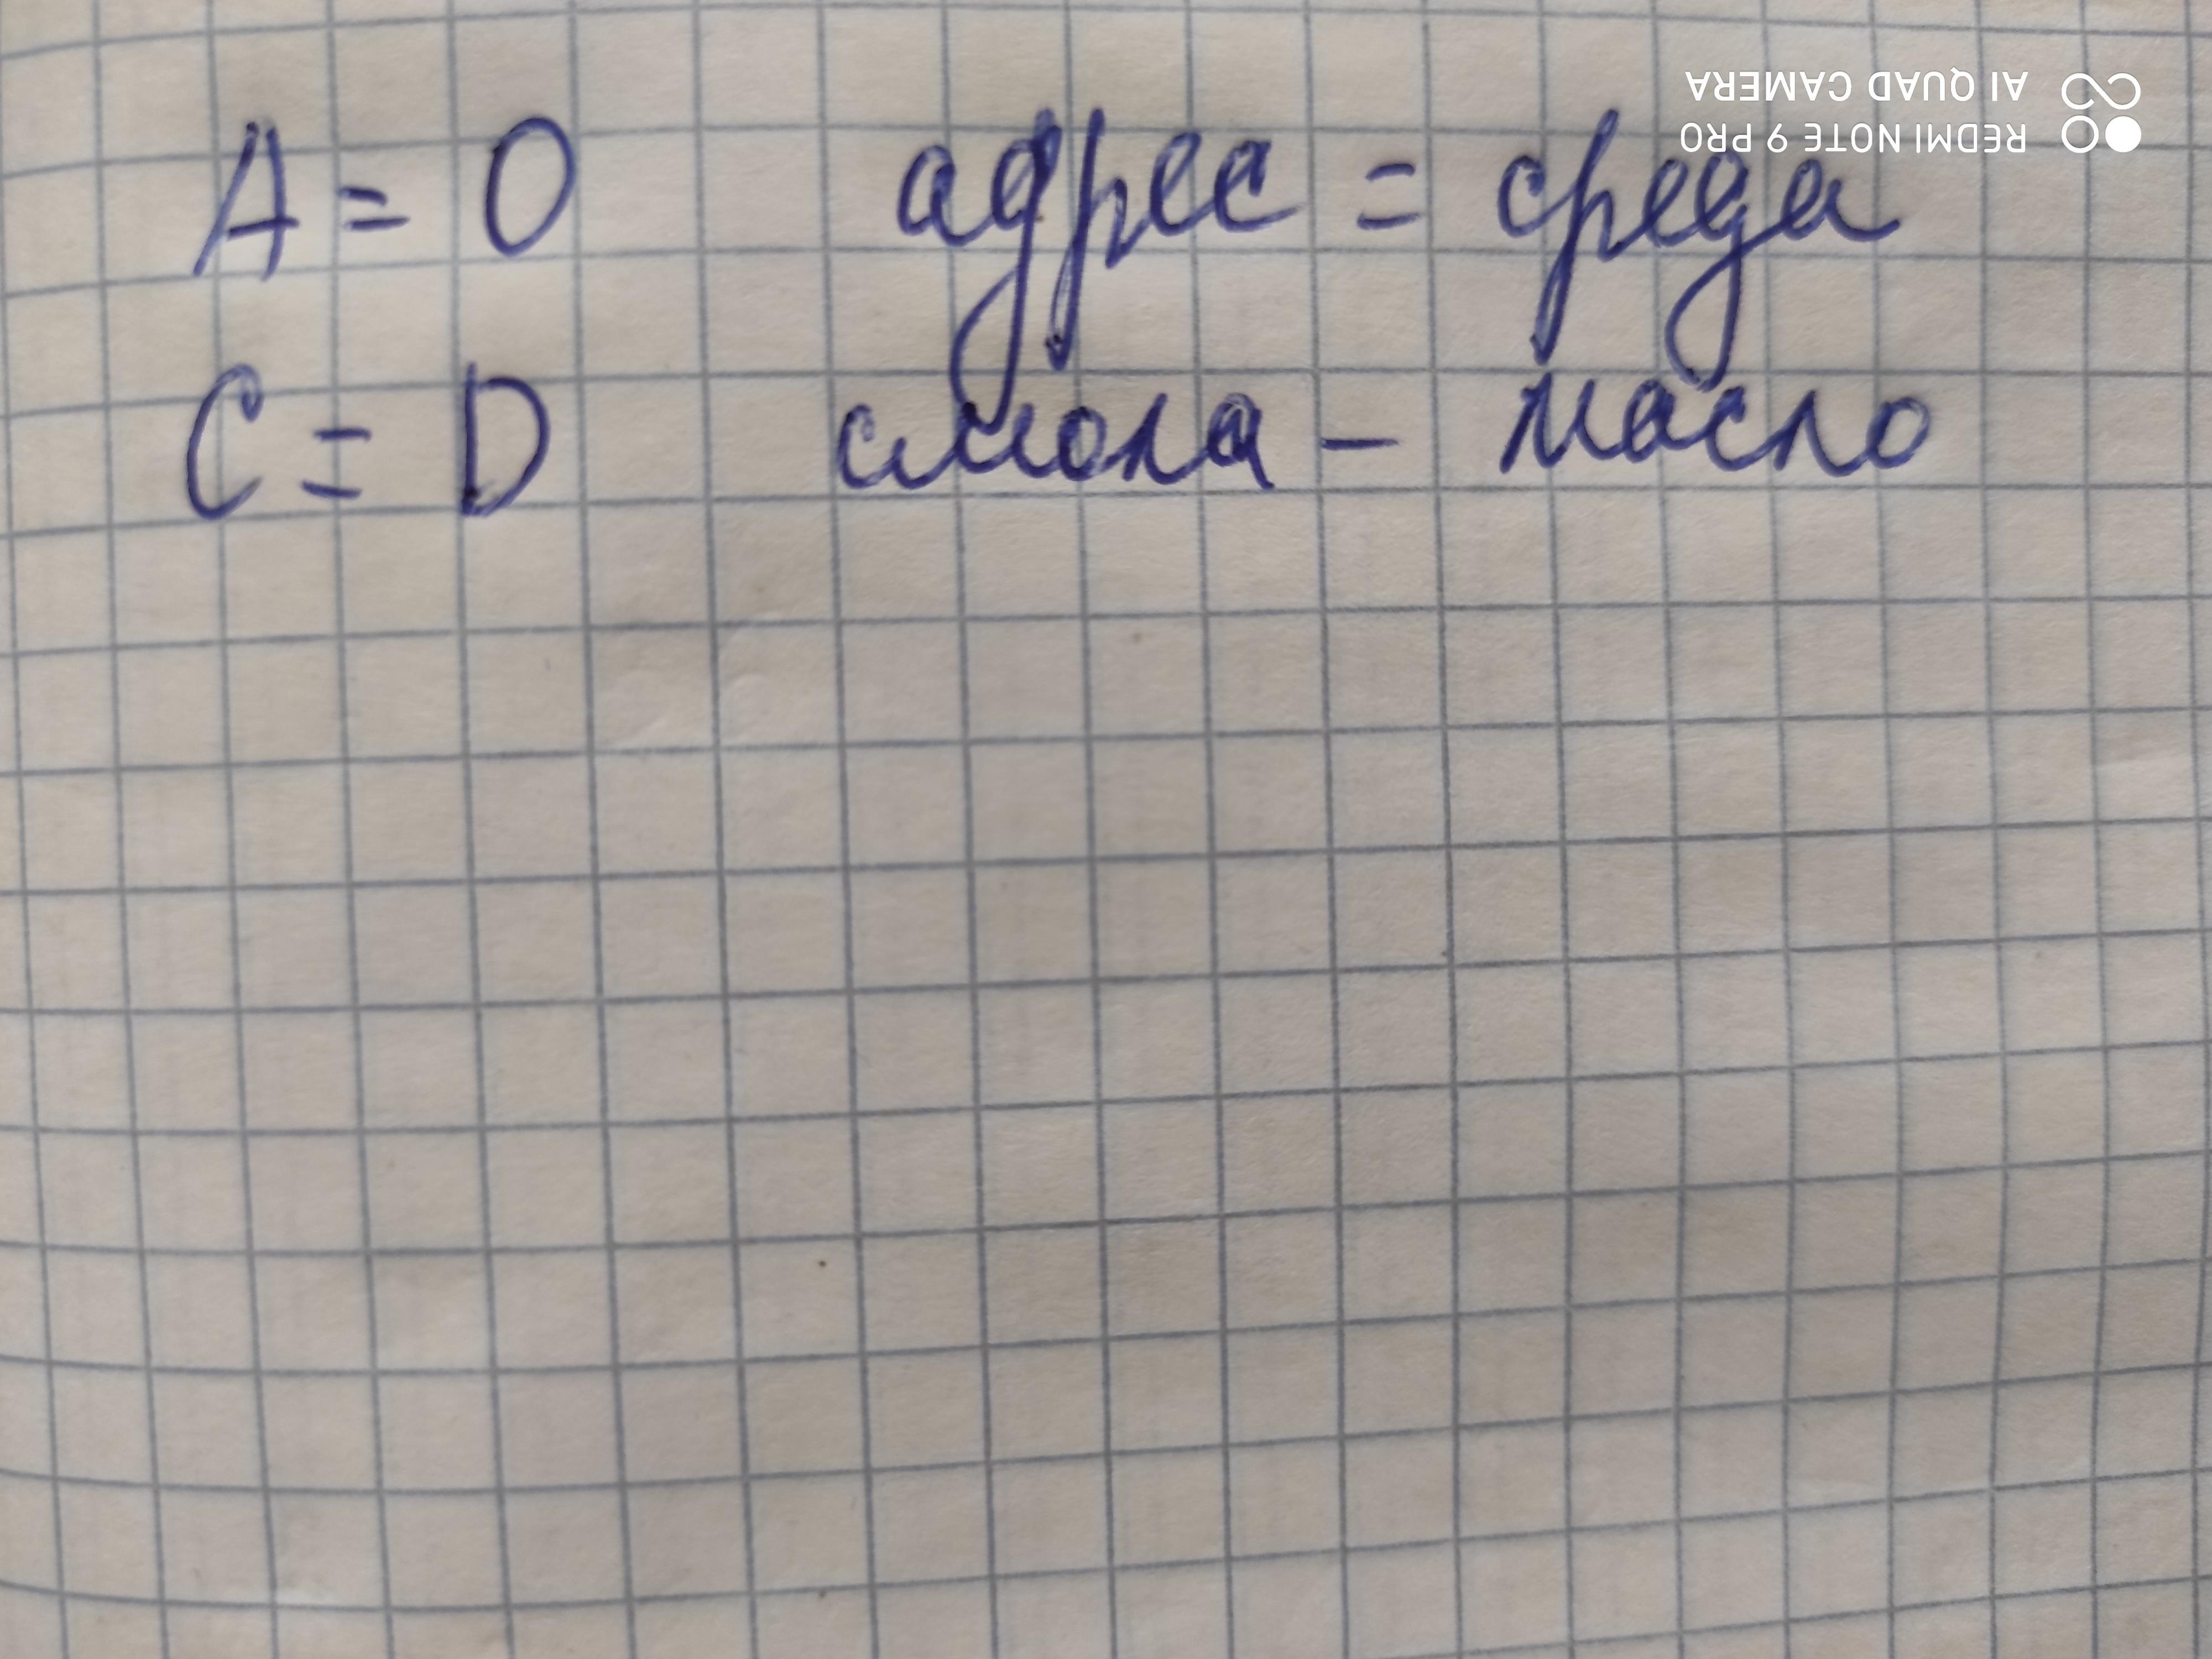 A = О адрес = среда
C = D смола – масло
REDMI NOTE 9 PRO
AI QUAD CAMERA